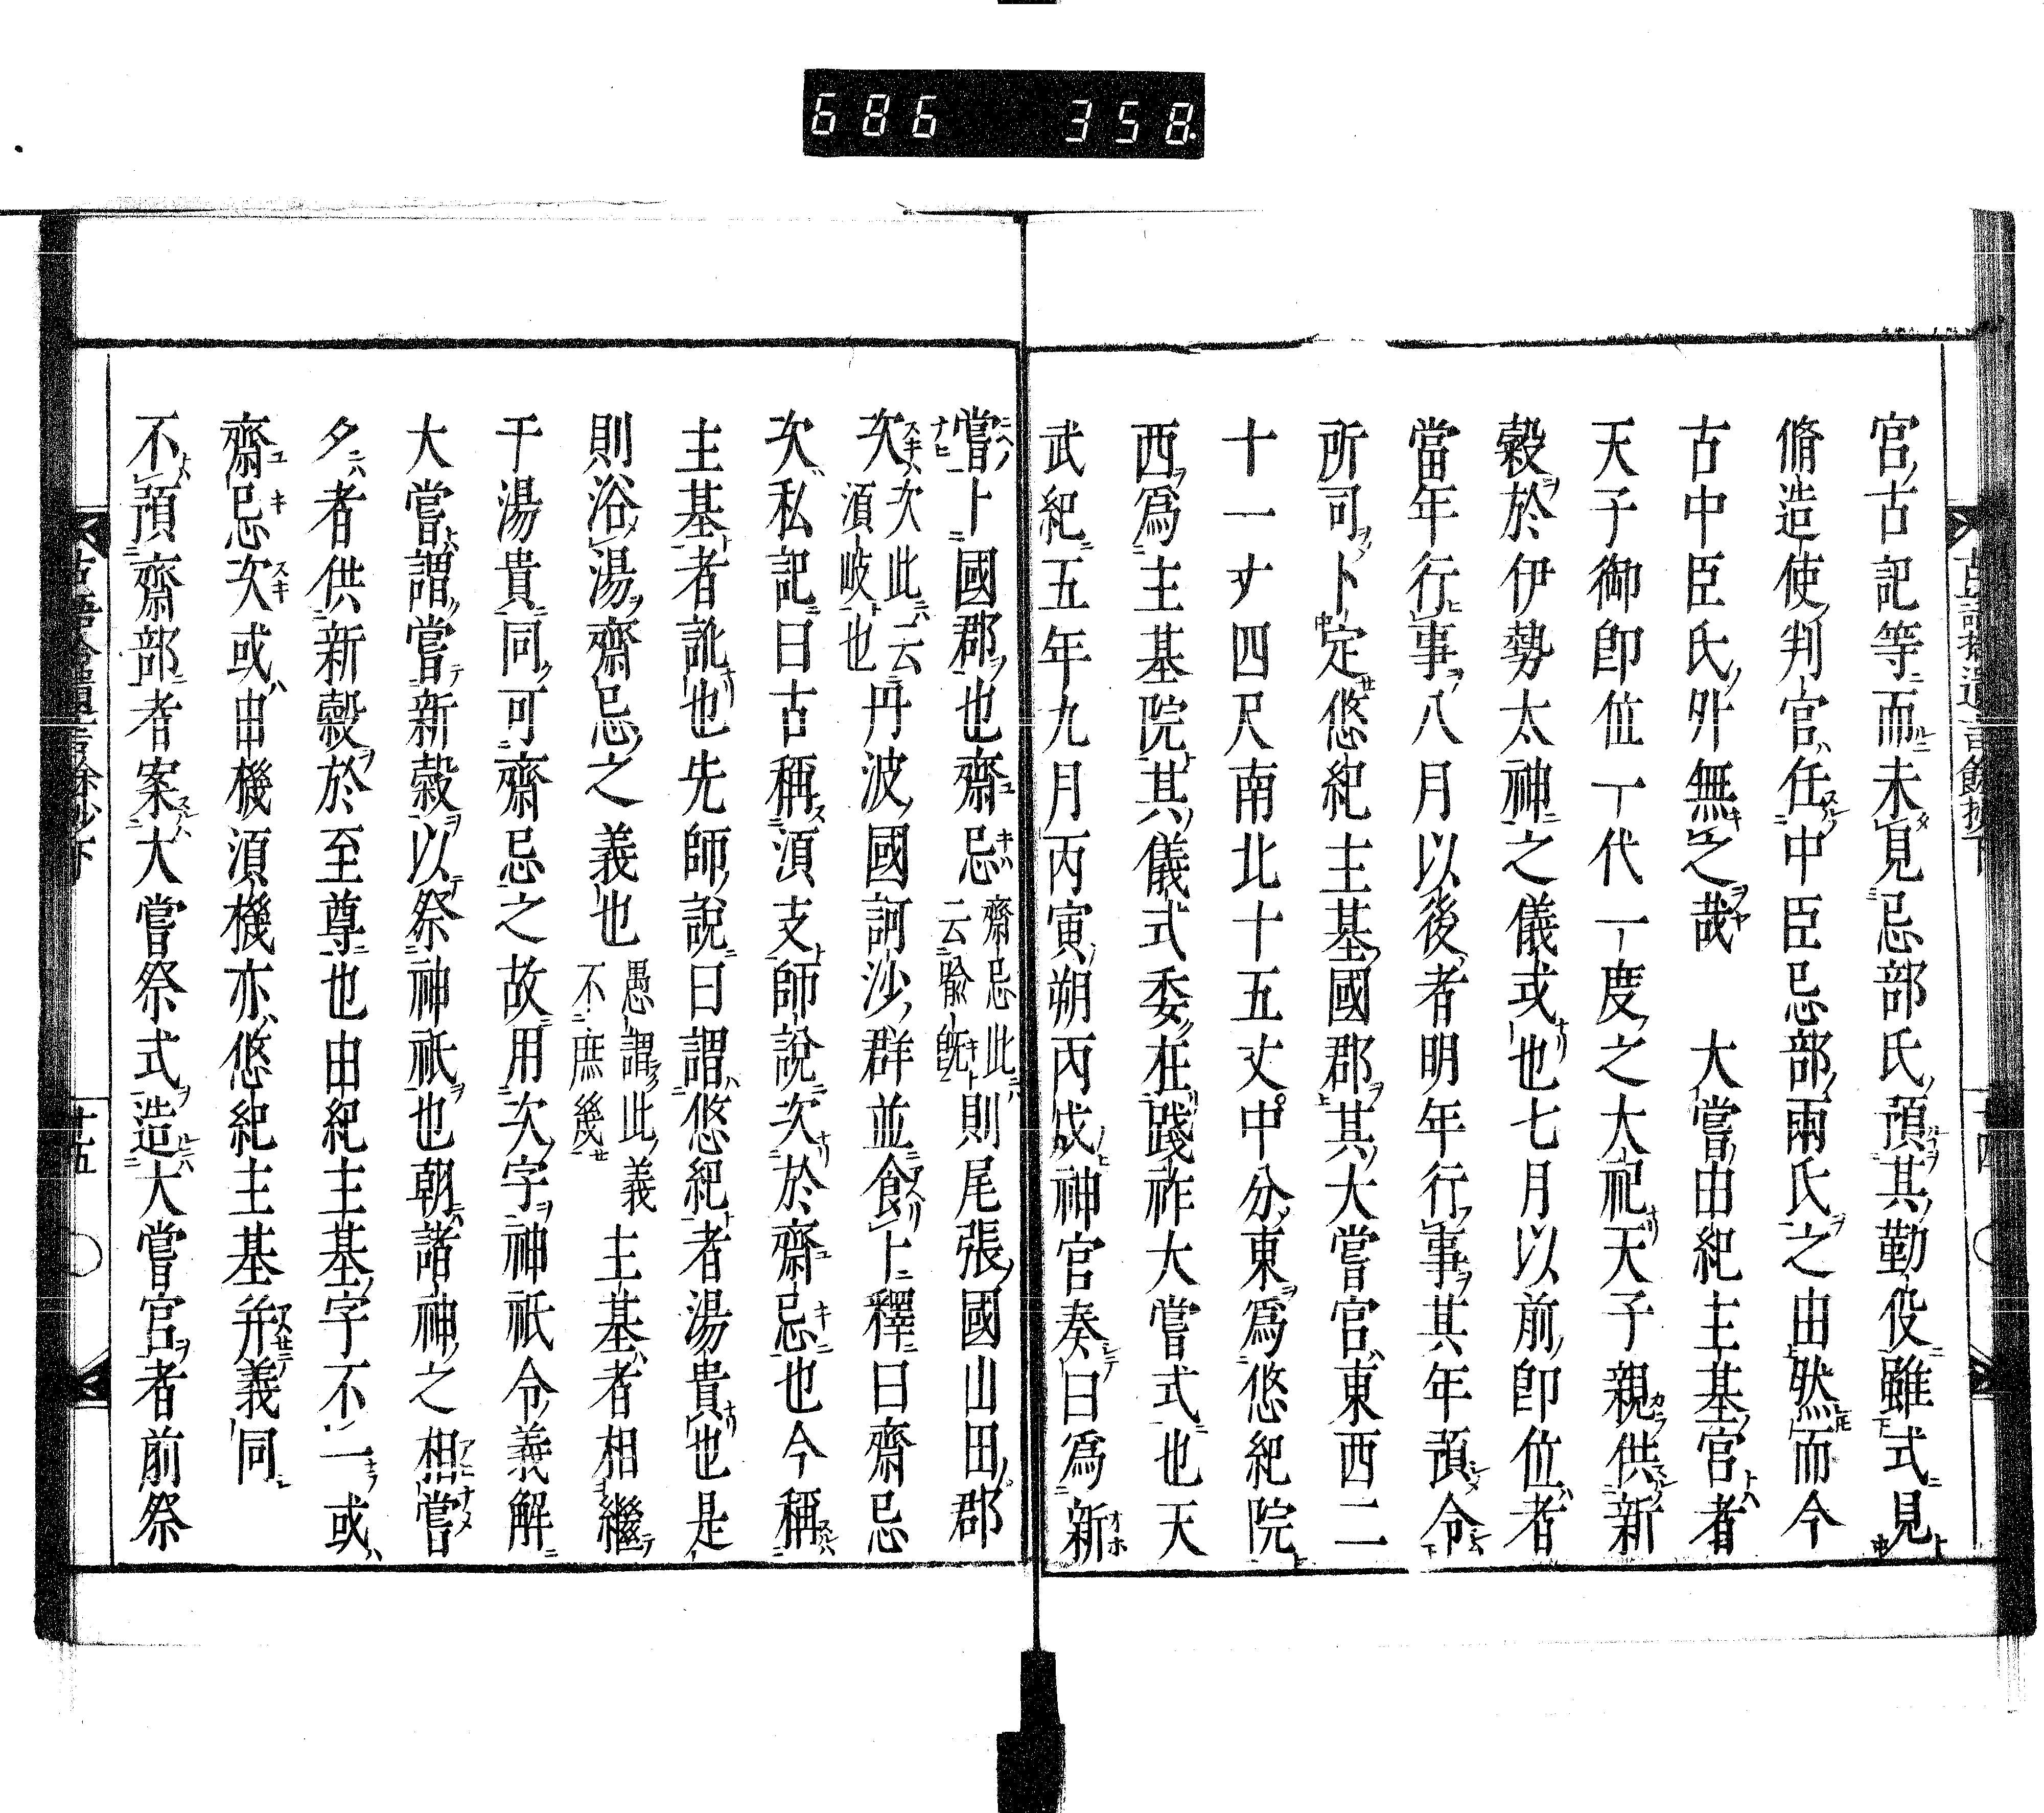 686 358.
官古記等而未見忌部氏預其勤役雖式見
脩造使判官任中臣忌部兩氏之由然而今
古中臣氏外無之哉　大嘗由紀主基宮者
天子御即位一代一度之大祀天子親供新
穀於伊勢太神之儀式也七月以前即位者
當年行事八月以後者明年行事其年預令
所司卜定悠紀主基國郡其大嘗宮東西二
十一丈四尺南北十五丈中分東爲悠紀院
西爲主基院其儀式委在踐祚大嘗式也天
武紀五年九月丙寅朔丙戌神官奏曰爲新
嘗卜國郡也齋忌齋忌此云踰既則尾張國山田郡
次次此云須岐也丹波國訶沙群並食卜釋曰齋忌
次私記曰古稱須支師說次於齋忌也今稱
主基者訛也先師說曰謂悠紀者湯貴也是
則浴湯齋忌之義也愚謂此義不庶幾主基者相繼
于湯貴同可齋忌之故用次字神祇令義解
大嘗謂嘗新穀以祭神祇也朝諸神之相嘗
夕者供新穀於至尊也由紀主基字不一或
齋忌次或由機須機亦悠紀主基并義同
不預齋部者案大嘗祭式造大嘗宮者前祭
古語拾遺言餘抄下